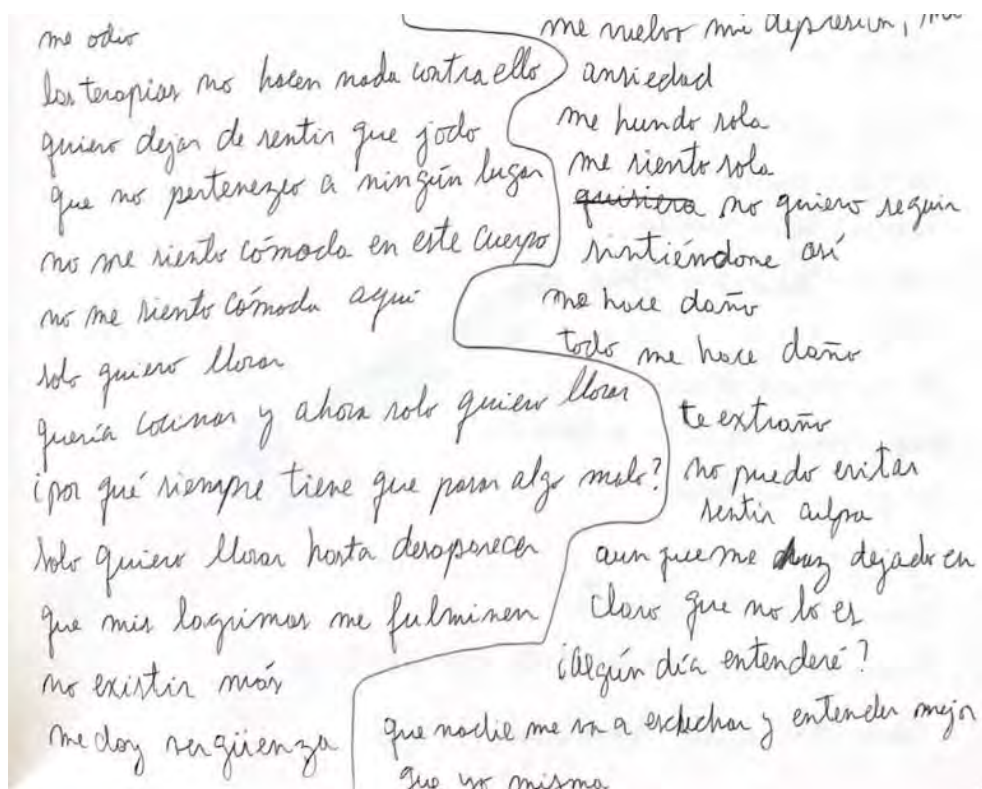 me odio
las terapias no hacen nada contra ello
quiero dejar de sentir que jodo
que no pertenezco a ningún lugar
no me siento cómoda en este cuerpo
no me siento cómoda aquí
solo quiero llorar
quería cocinar y ahora solo quiero llorar
¿por qué siempre tiene que pasar algo malo?
solo quiero llorar hasta desaparecer
que mis lagrimas me fulminen
no existir más
me doy vergüenza
me vuelvo mi depresión, mi
ansiedad
me hundo sola
me siento sola
quisiera no quiero seguir
sintiéndome así
me hace daño
todo me hace daño
te extraño
no puedo evitar
sentir culpa
aun que me haz dejado en
claro que no lo es
¿algún día entenderé?
que nadie me va a escuchar y entender mejor
que yo misma